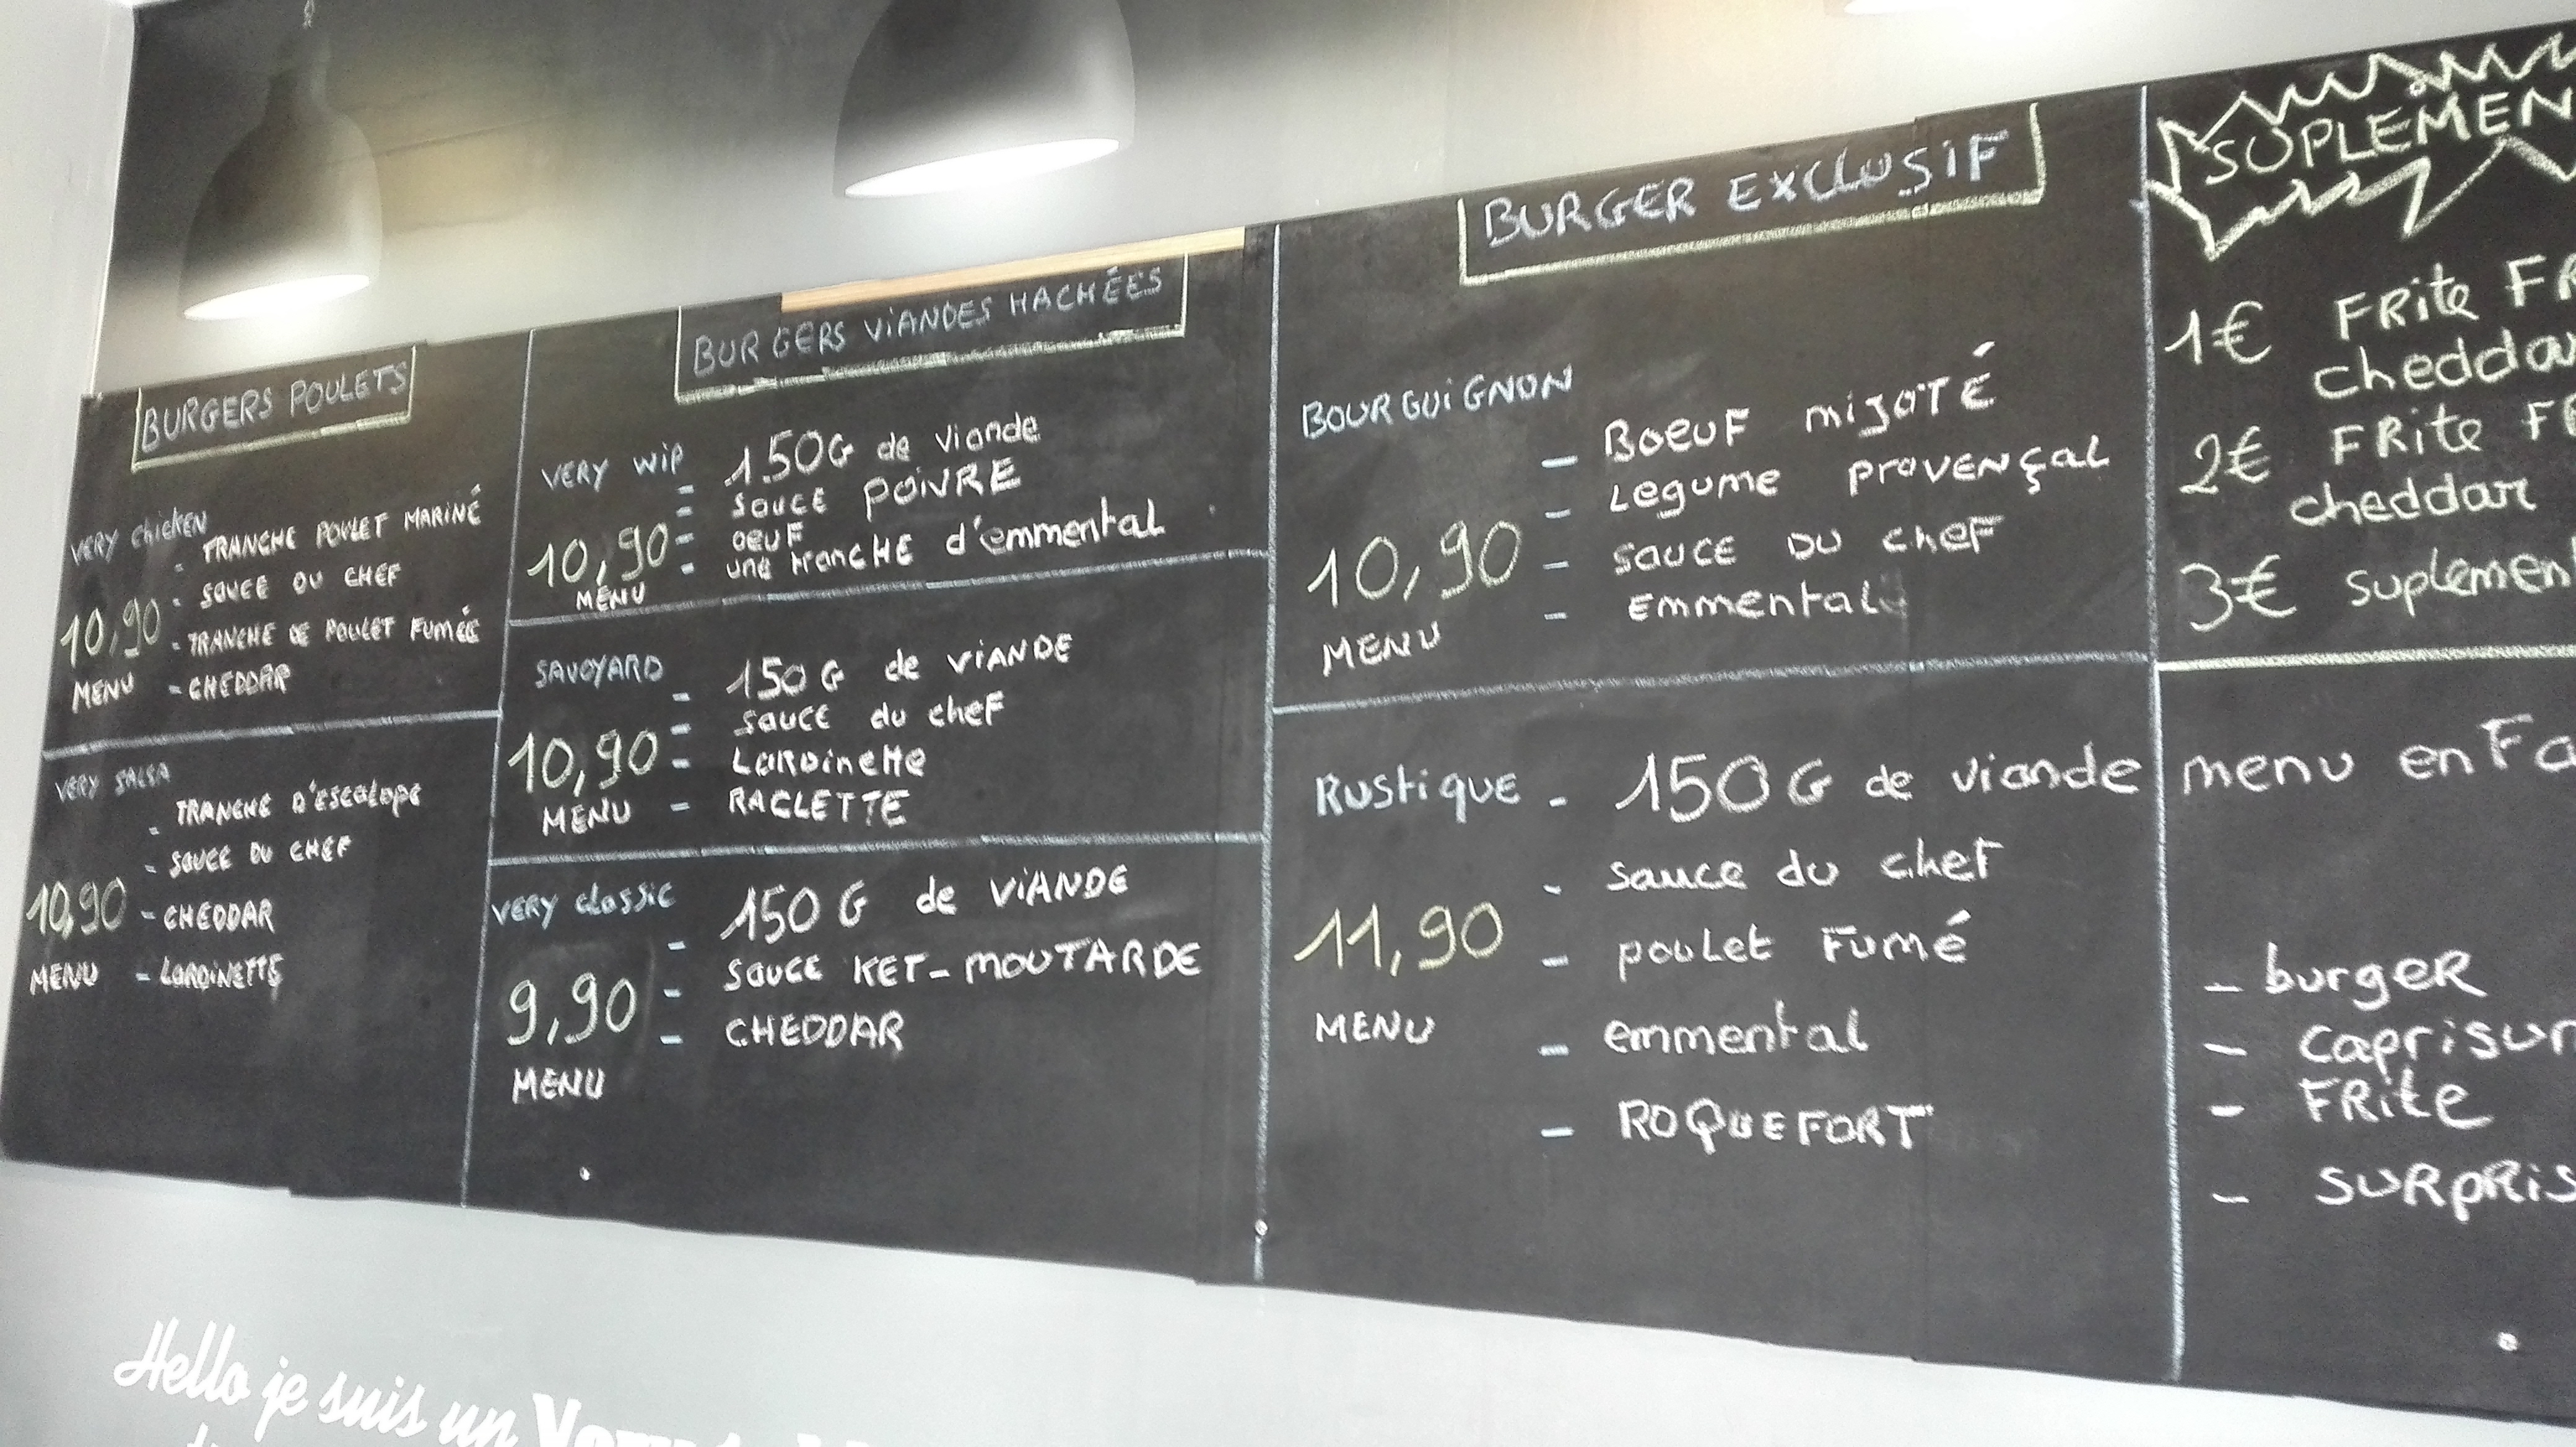 BURGERS POULETS
VERY chicken
- TRANCHE POULET MARINÉ
- SAUCE DU CHEF
10,90
- TRANCHE DE POULET FUMÉE
MENU
- CHEDDAR
VERY SALSA
- TRANCHE D'ESCALOPE
- SAUCE DU CHEF
10,90
- CHEDDAR
MENU
- LARDINETTE
BURGERS VIANDES HACHÉES
VERY WIP
- 150G de viande
- sauce POIVRE
10,90
- oeuf
- une tranCHE d'emmental
MENU
SAVOYARD
- 150 G de VIANDE
- sauce du chef
10,90
- LARDinette
MENU
- RACLETTE
VERY classic
- 150 G de VIANDE
9,90
- SAUCE KET-MOUTARDE
- CHEDDAR
MENU
BURGER EXCLUSIF
BOURGUIGNON
- BOEUF mijOTÉ
- Legume PROVENÇAL
10,90
- SAUCE DU CHEF
- Emmental
MENU
RUSTIQUE
- 150 G de viande
- sauce du chef
11,90
- poulet Fumé
MENU
- emmental
- ROQUEFORT
SUPLEMEN
1€ FRite FR
cheddar
2€ FRite
cheddar
3€ suplement
menu enFa
- burgeR
- caprisun
- FRite
- SURPRIS
Hello je suis un